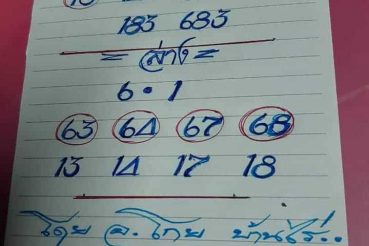 183 683
= ล่าง =
6 • 1
63 64 67 68
13 14 17 18
โดย อ.โกย บ้านไร่..